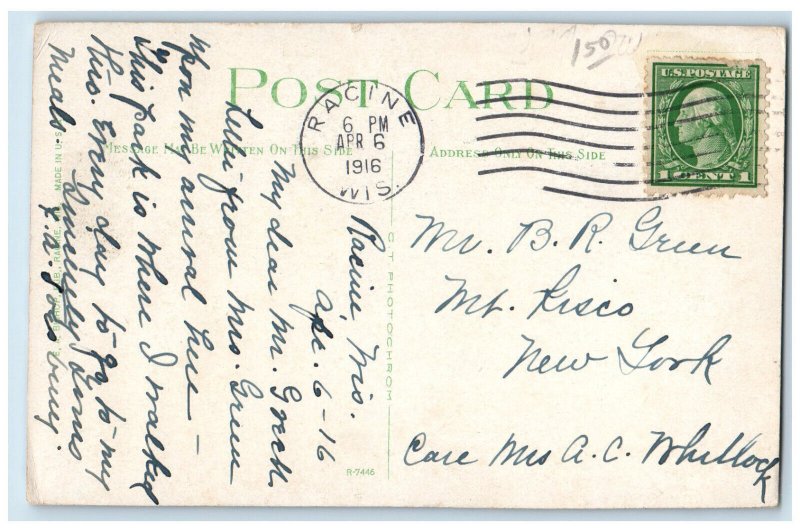 150
POST CARD
U.S. POSTAGE
1 CENT 1
RACINE
6 PM
APR 6
1916
WIS.
MESSAGE MAY BE WRITTEN ON THIS SIDE
ADDRESS ONLY ON THIS SIDE
Mr. B. R. Green
Mt. Kisco
New York
Care Mrs A. C. Whitlock
Racine, Wis.
Apr. 6-16
My dear Mr.
Letter from Mrs. Green
upon my arrival here —
This park is where I walked
thro. Every day to go to my
meals Sincerely yours
C. T. PHOTOCHROM
R-7446
RACINE, WIS. MADE IN U.S.